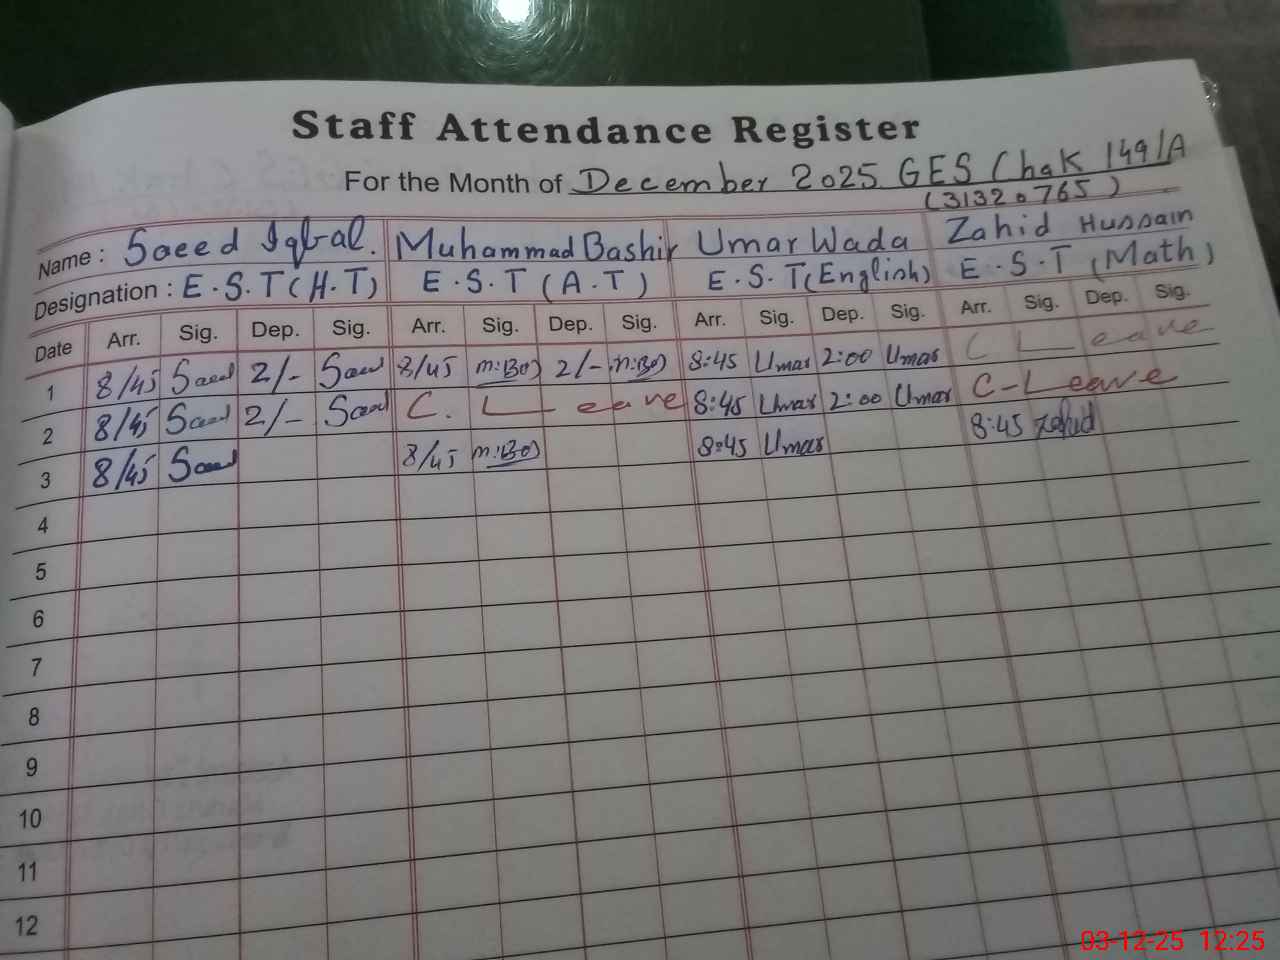 Staff Attendance Register
For the Month of December 2025 GES Chak 149/A
(31320765)
Name : Saeed Iqbal. Muhammad Bashir Umar Wada Zahid Hussain
Designation : E.S.T (H.T) E.S.T (A.T) E.S.T (English) E.S.T (Math)
Date Arr. Sig. Dep. Sig. Arr. Sig. Dep. Sig. Arr. Sig. Dep. Sig. Arr. Sig. Dep. Sig.
1 8/45 Saeed 2/- Saeed 8/45 2/- 8:45 Umar 2:00 Umar C Leave
2 8/45 Saeed 2/- Saeed C. Leave 8:45 Umar 2:00 Umar C-Leave
3 8/45 Saeed 8/45 8:45 Umar 8:45 Zahid
4
5
6
7
8
9
10
11
12
03-12-25 12:25